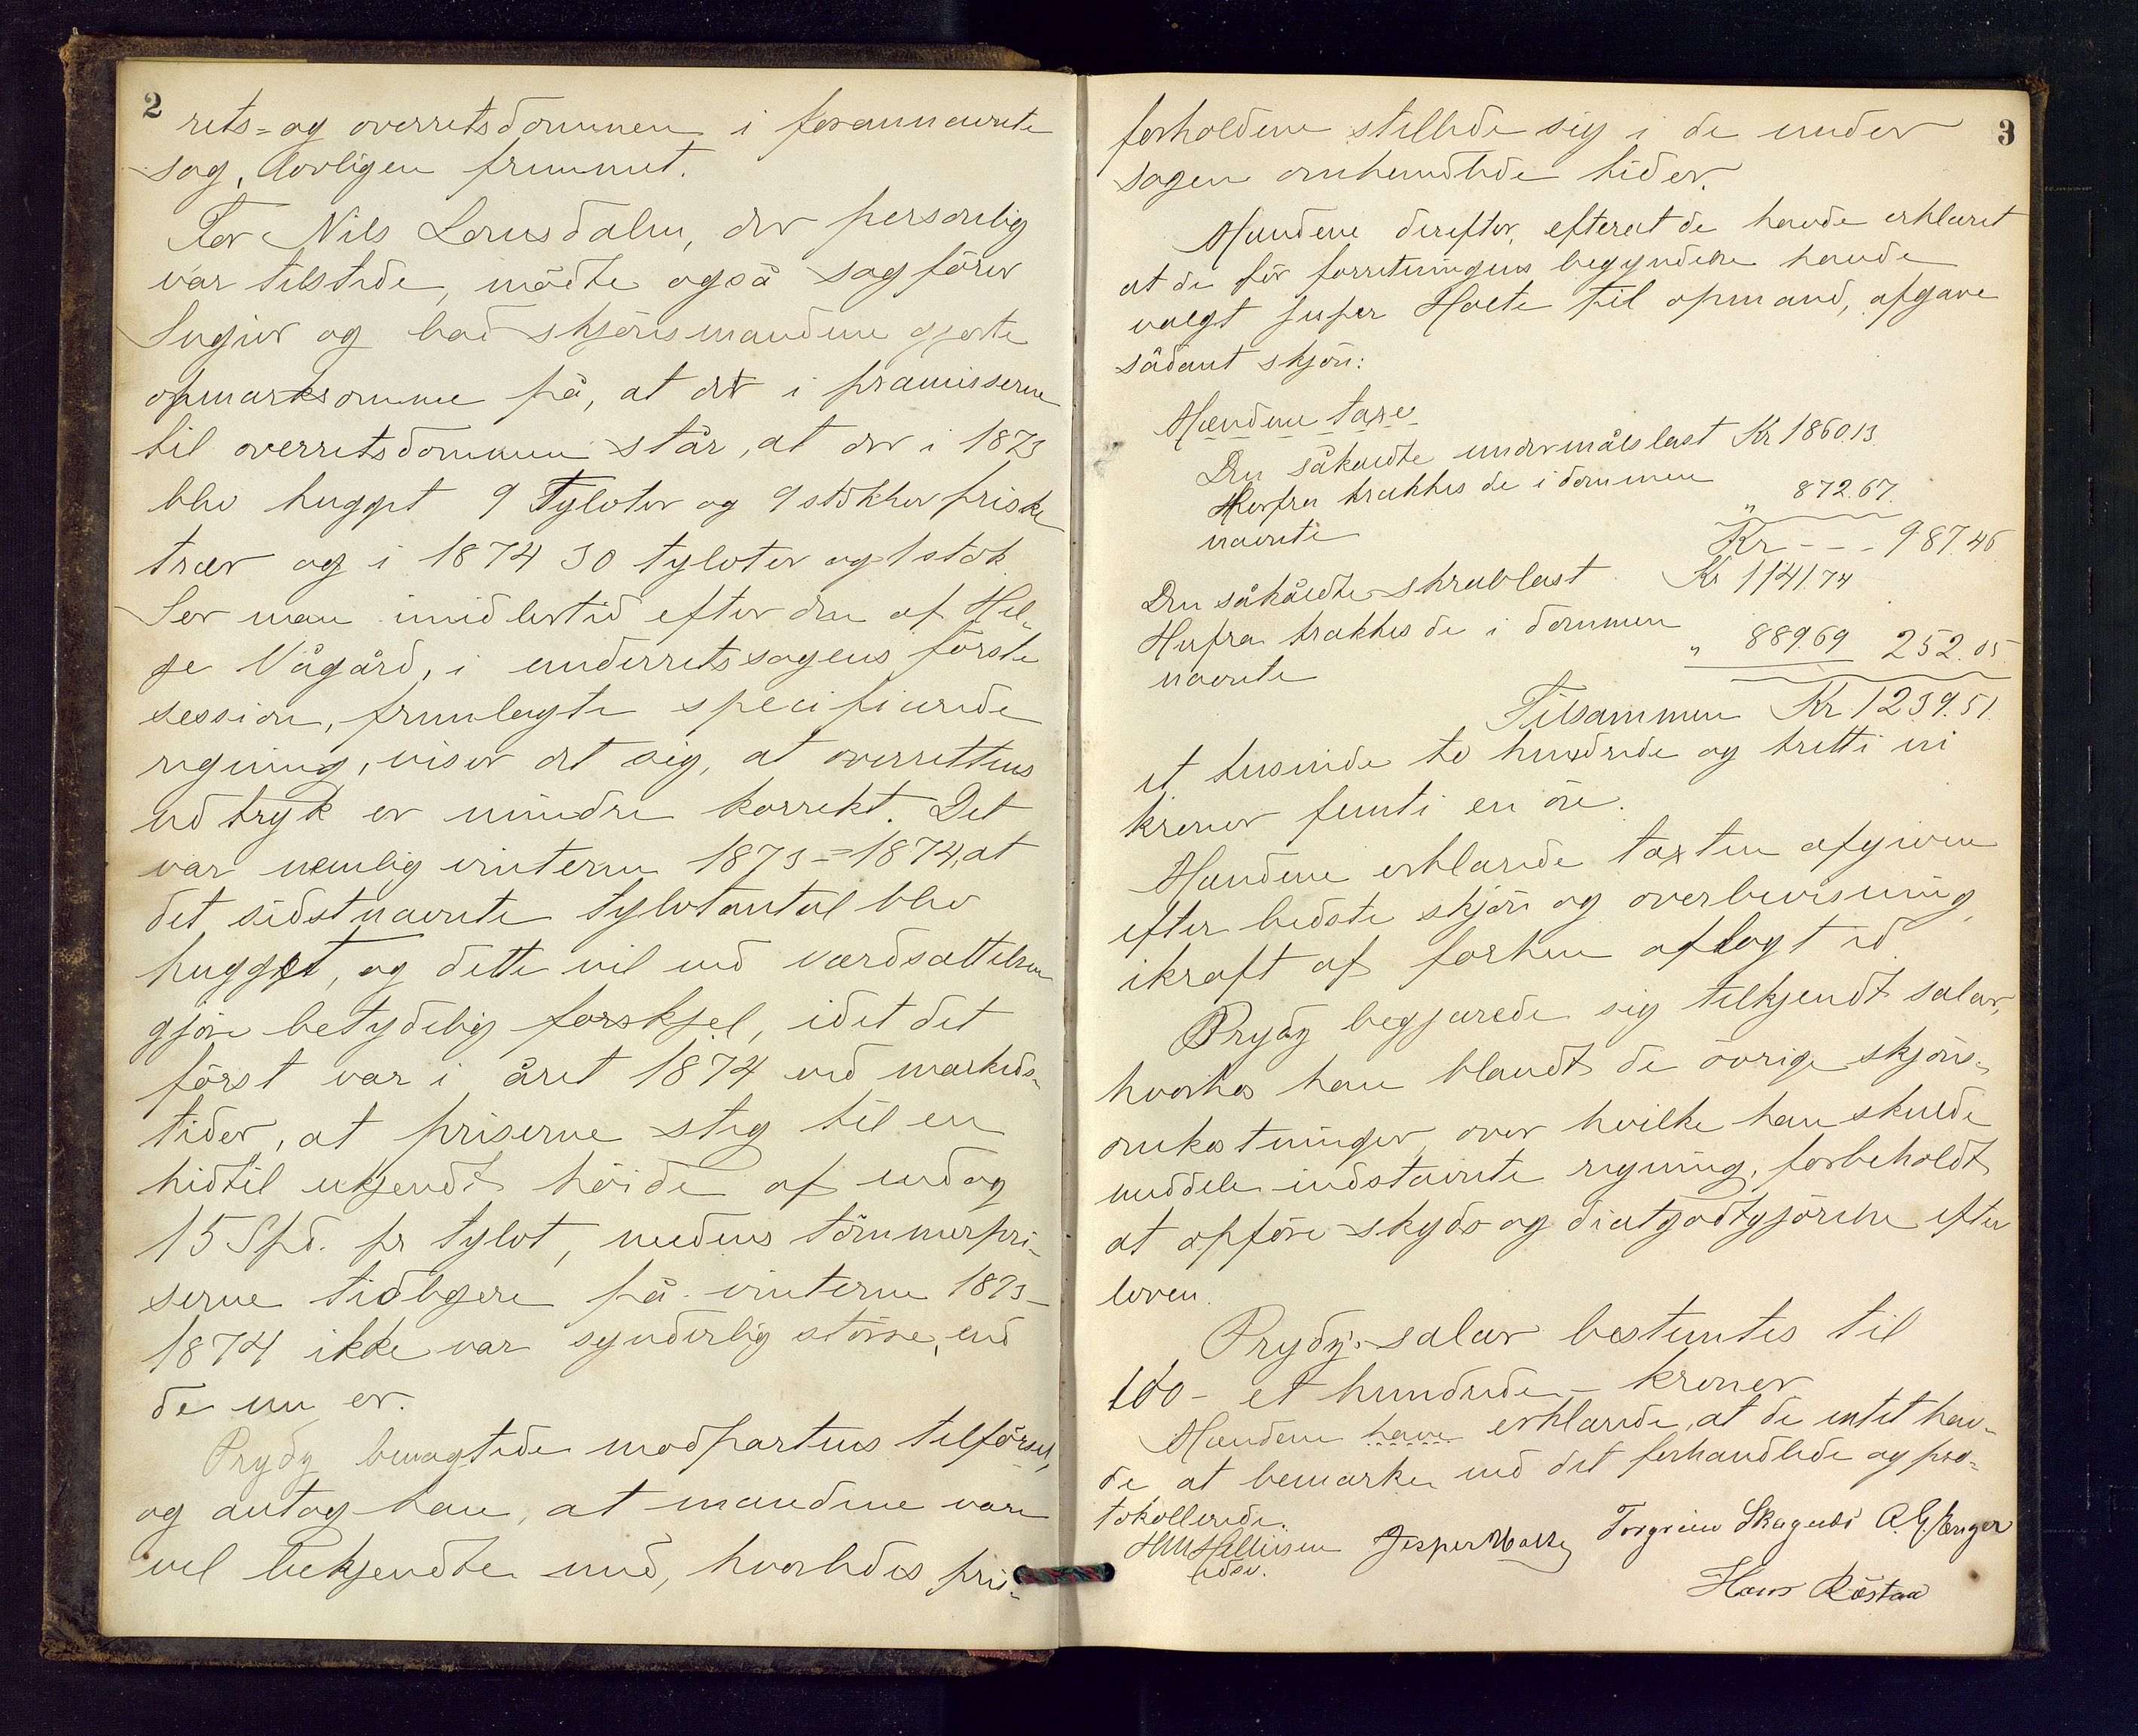 2
rets- og overretsdommen i forannævnte
sag, lovligen fremmet.
For Nils Lonsdalen, der personlig
var tilstede, mødte også sagfører
Sugiur og bad skjønsmændene gjorte
opmærksomme på, at det i præmisserne
til overretsdommen står, at der i 1873
blev hugget 9 Tylvter og 9 stokker friske
trær og i 1874 30 tylvter og 1 stok.
Ser man imidlertid efter den af Hel-
ge Vågård, i underretssagens første
session, fremlagte specificerede
regning, viser det sig, at overrettens
udtryk er mindre korrekt. Det
var nemlig vinteren 1873-1874, at
det sidstnævnte tylvtantal blev
hugget, og dette vil ved værdsættelsen
gjøre betydelig forskjel, idet det
først var i året 1874 ved markeds-
tider, at priserne steg til en
hidtil ukjendt høide af endog
15 Spd. pr tylvt, medens tømmerpri-
serne tidligere på vinteren 1873-
1874 ikke var synderlig større, end
de nu er.
Prydz benægtede modpartens tilførsel,
og antog han, at mændene var
vel bekjendte med, hvorledes pris-
3
forholdene stillede sig i de under
sagen omhandlede tider.
Mændene derefter, efterat de havde erklæret
at de før forretningens begyndelse havde
valgt Jesper Holte til opmand, afgave
sådant skjøn:
Mændene taxe
Den såkaldte undermålslast Kr 1860.13.
Herfra trækkes de i dommen
nævnte " 872.67.
Kr - - - 987.46
Den såkaldte skrablast Kr 1141.74
Herfra trækkes de i dommen
nævnte " 889.69 252.05.
Tilsammen Kr. 1239.51.
et tusinde to hundrede og tretti ni
kroner femti en øre.
Mændene erklærede taxten afgiven
efter bedste skjøn og overbevisning
ikraft af forhen aflagt ed.
Prydz begjærede sig tilkjendt salær,
hvorhos han blandt de øvrige skjøns-
omkostninger, over hvilke han skulde
meddele indstævnte regning, forbeholdt
at opføre skyds og diætgodtgjørelse efter
loven.
Prydz's salær bestemtes til
100 - et hundrede - kroner
Mændene have erklærede, at de intet hav-
de at bemærke ved det forhandlede og pro-
tokollerede.
Jesper Holte Torgrim Skagnæs A. G. Senger
edsv.
Hans Røstaa